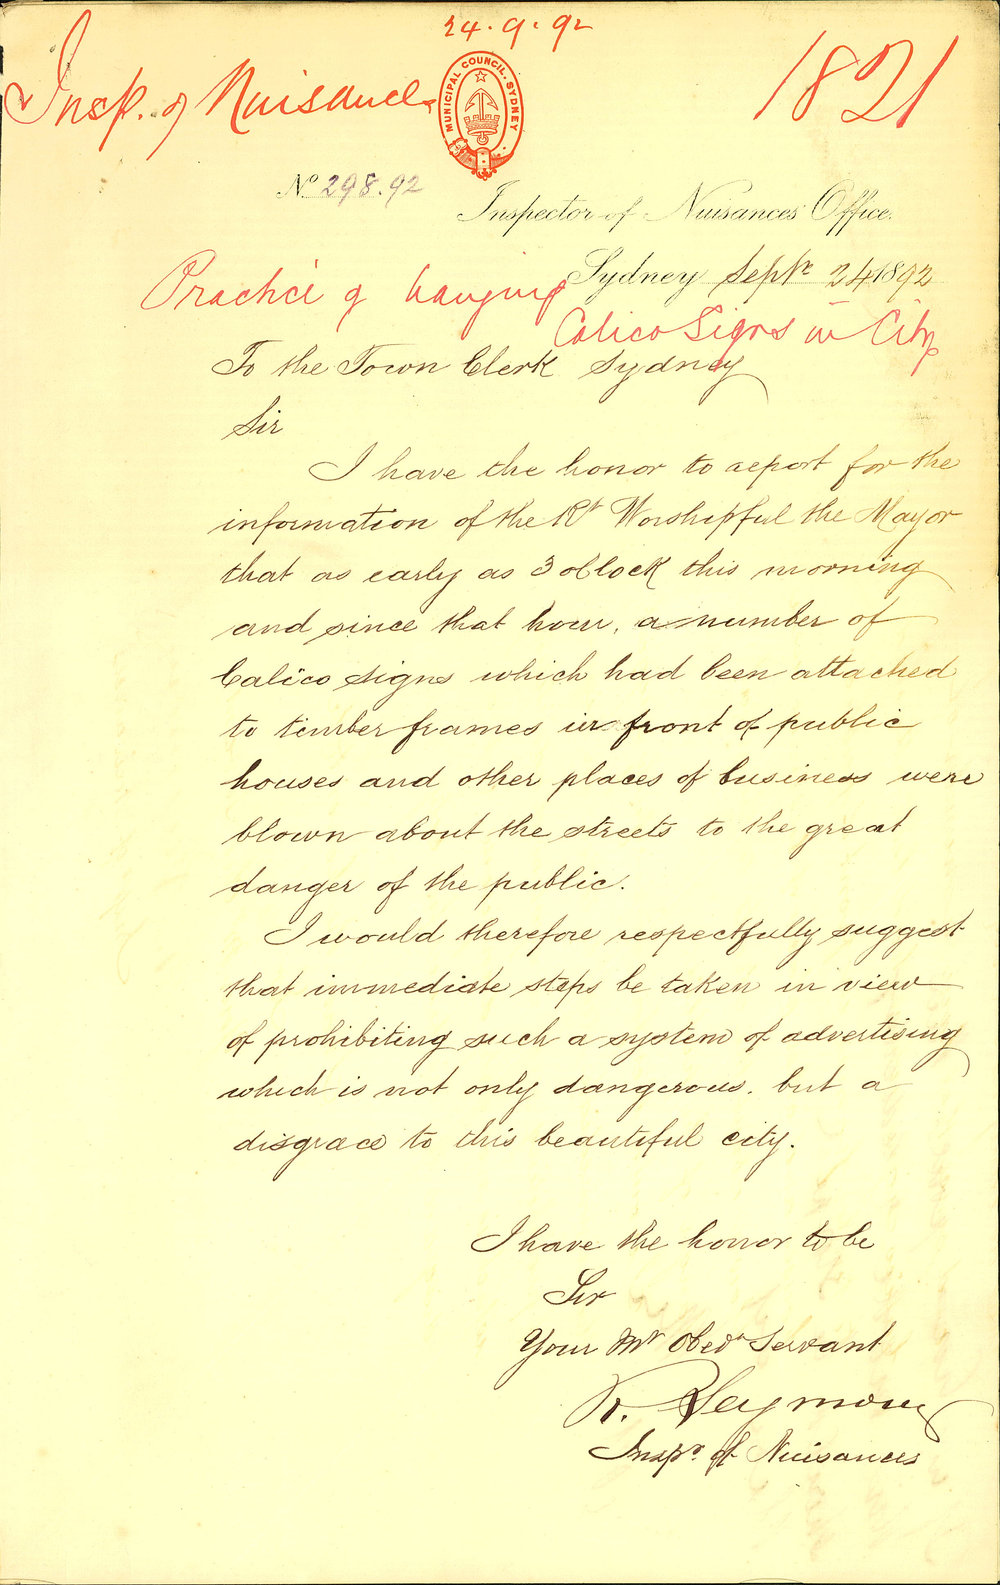 24.9.92
Insp. of Nuisances
1821
MUNICIPAL COUNCIL. SYDNEY
No 298.92
Inspector of Nuisances Office.
Sydney Septr 24 1892
Practice of hanging
Calico Signs in City
To the Town Clerk Sydney
Sir
I have the honor to report for the
information of the Rt Worshipful the Mayor
that as early as 3 oClock this morning
and since that hour, a number of
Calico signs which had been attached
to timber frames in front of public
houses and other places of business were
blown about the streets to the great
danger of the public.
I would therefore respectfully suggest
that immediate steps be taken in view
of prohibiting such a system of advertising
which is not only dangerous. but a
disgrace to this beautiful city.
I have the honor to be
Sir
Your Mt Obedt Servant
R. Seymour
Inspr of Nuisances